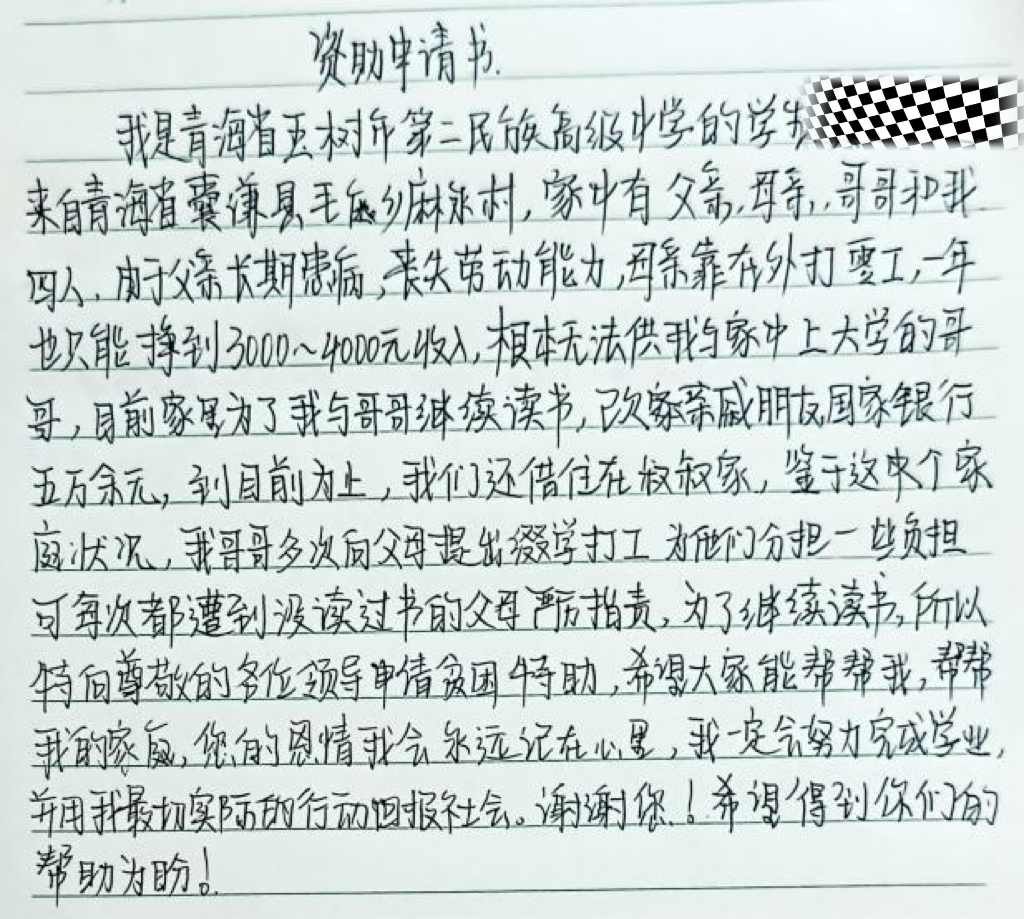 资助申请书.
我是青海省玉树市第二民族高级中学的学生
来自青海省囊谦县毛庄乡麻永村,家中有父亲,母亲,哥哥和我
四人,由于父亲长期患病,丧失劳动能力,母亲靠在外打零工,一年
也只能挣到3000~4000元收入,根本无法供我与家中上大学的哥
哥,目前家里为了我与哥哥继续读书,已欠家亲戚朋友,国家银行
五万余元,到目前为止,我们还借住在叔叔家,鉴于这个家
庭状况,我哥哥多次向父母提出缀学打工 为他们分担一些负担
可每次都遭到没读过书的父母严厉指责,为了继续读书,所以
特向尊敬的各位领导申请贫困特助,希望大家能帮帮我,帮帮
我的家庭,您的恩情我会永远记在心里,我一定会努力完成学业,
并用我最切实际的行动回报社会。谢谢您!希望得到你们的
帮助为盼!